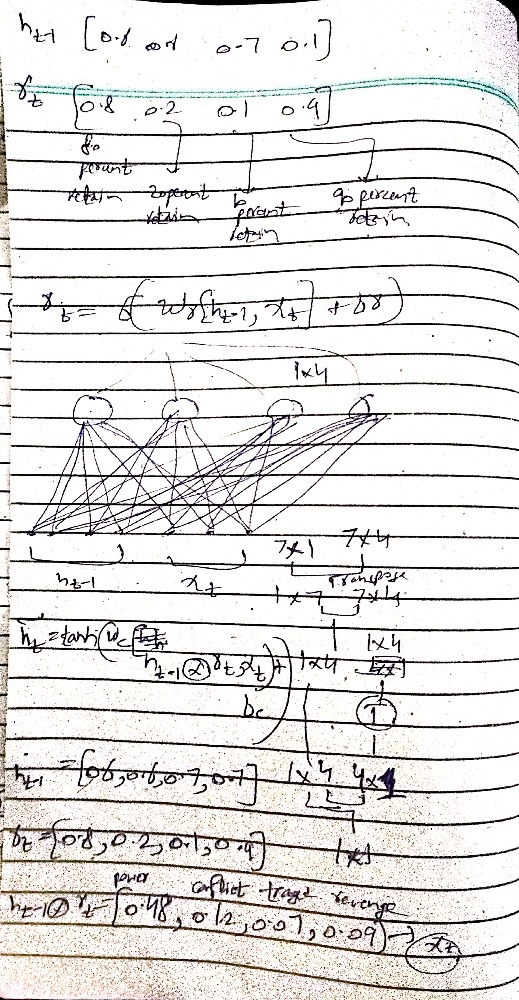 h_t-1 [0.8 0.8 0.7 0.1]
r_t [0.8 0.2 0.1 0.9]
80 percent retain
20 percent retain
10 percent retain
90 percent retain
r_t = σ(Wr[h_t-1, x_t] + br)
1x4
h_t-1 x_t
7x1 7x4
Transpose
1x7 7x4
1x4
h̃_t = tanh(Wc
h_t-1 ⊗ r_t, x_t) +
bc
1x4
1
h_t-1 = [0.6, 0.6, 0.7, 0.7]
1x4 4x1
r_t = [0.8, 0.2, 0.1, 0.9]
1x1
power conflict revenge
h_t-1 ⊗ r_t = [0.48, 0.12, 0.07, 0.09] → x_t